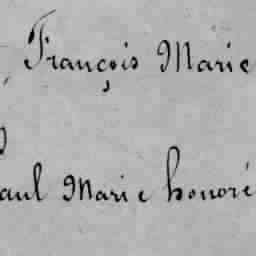 François Marie
aul Marie honoré